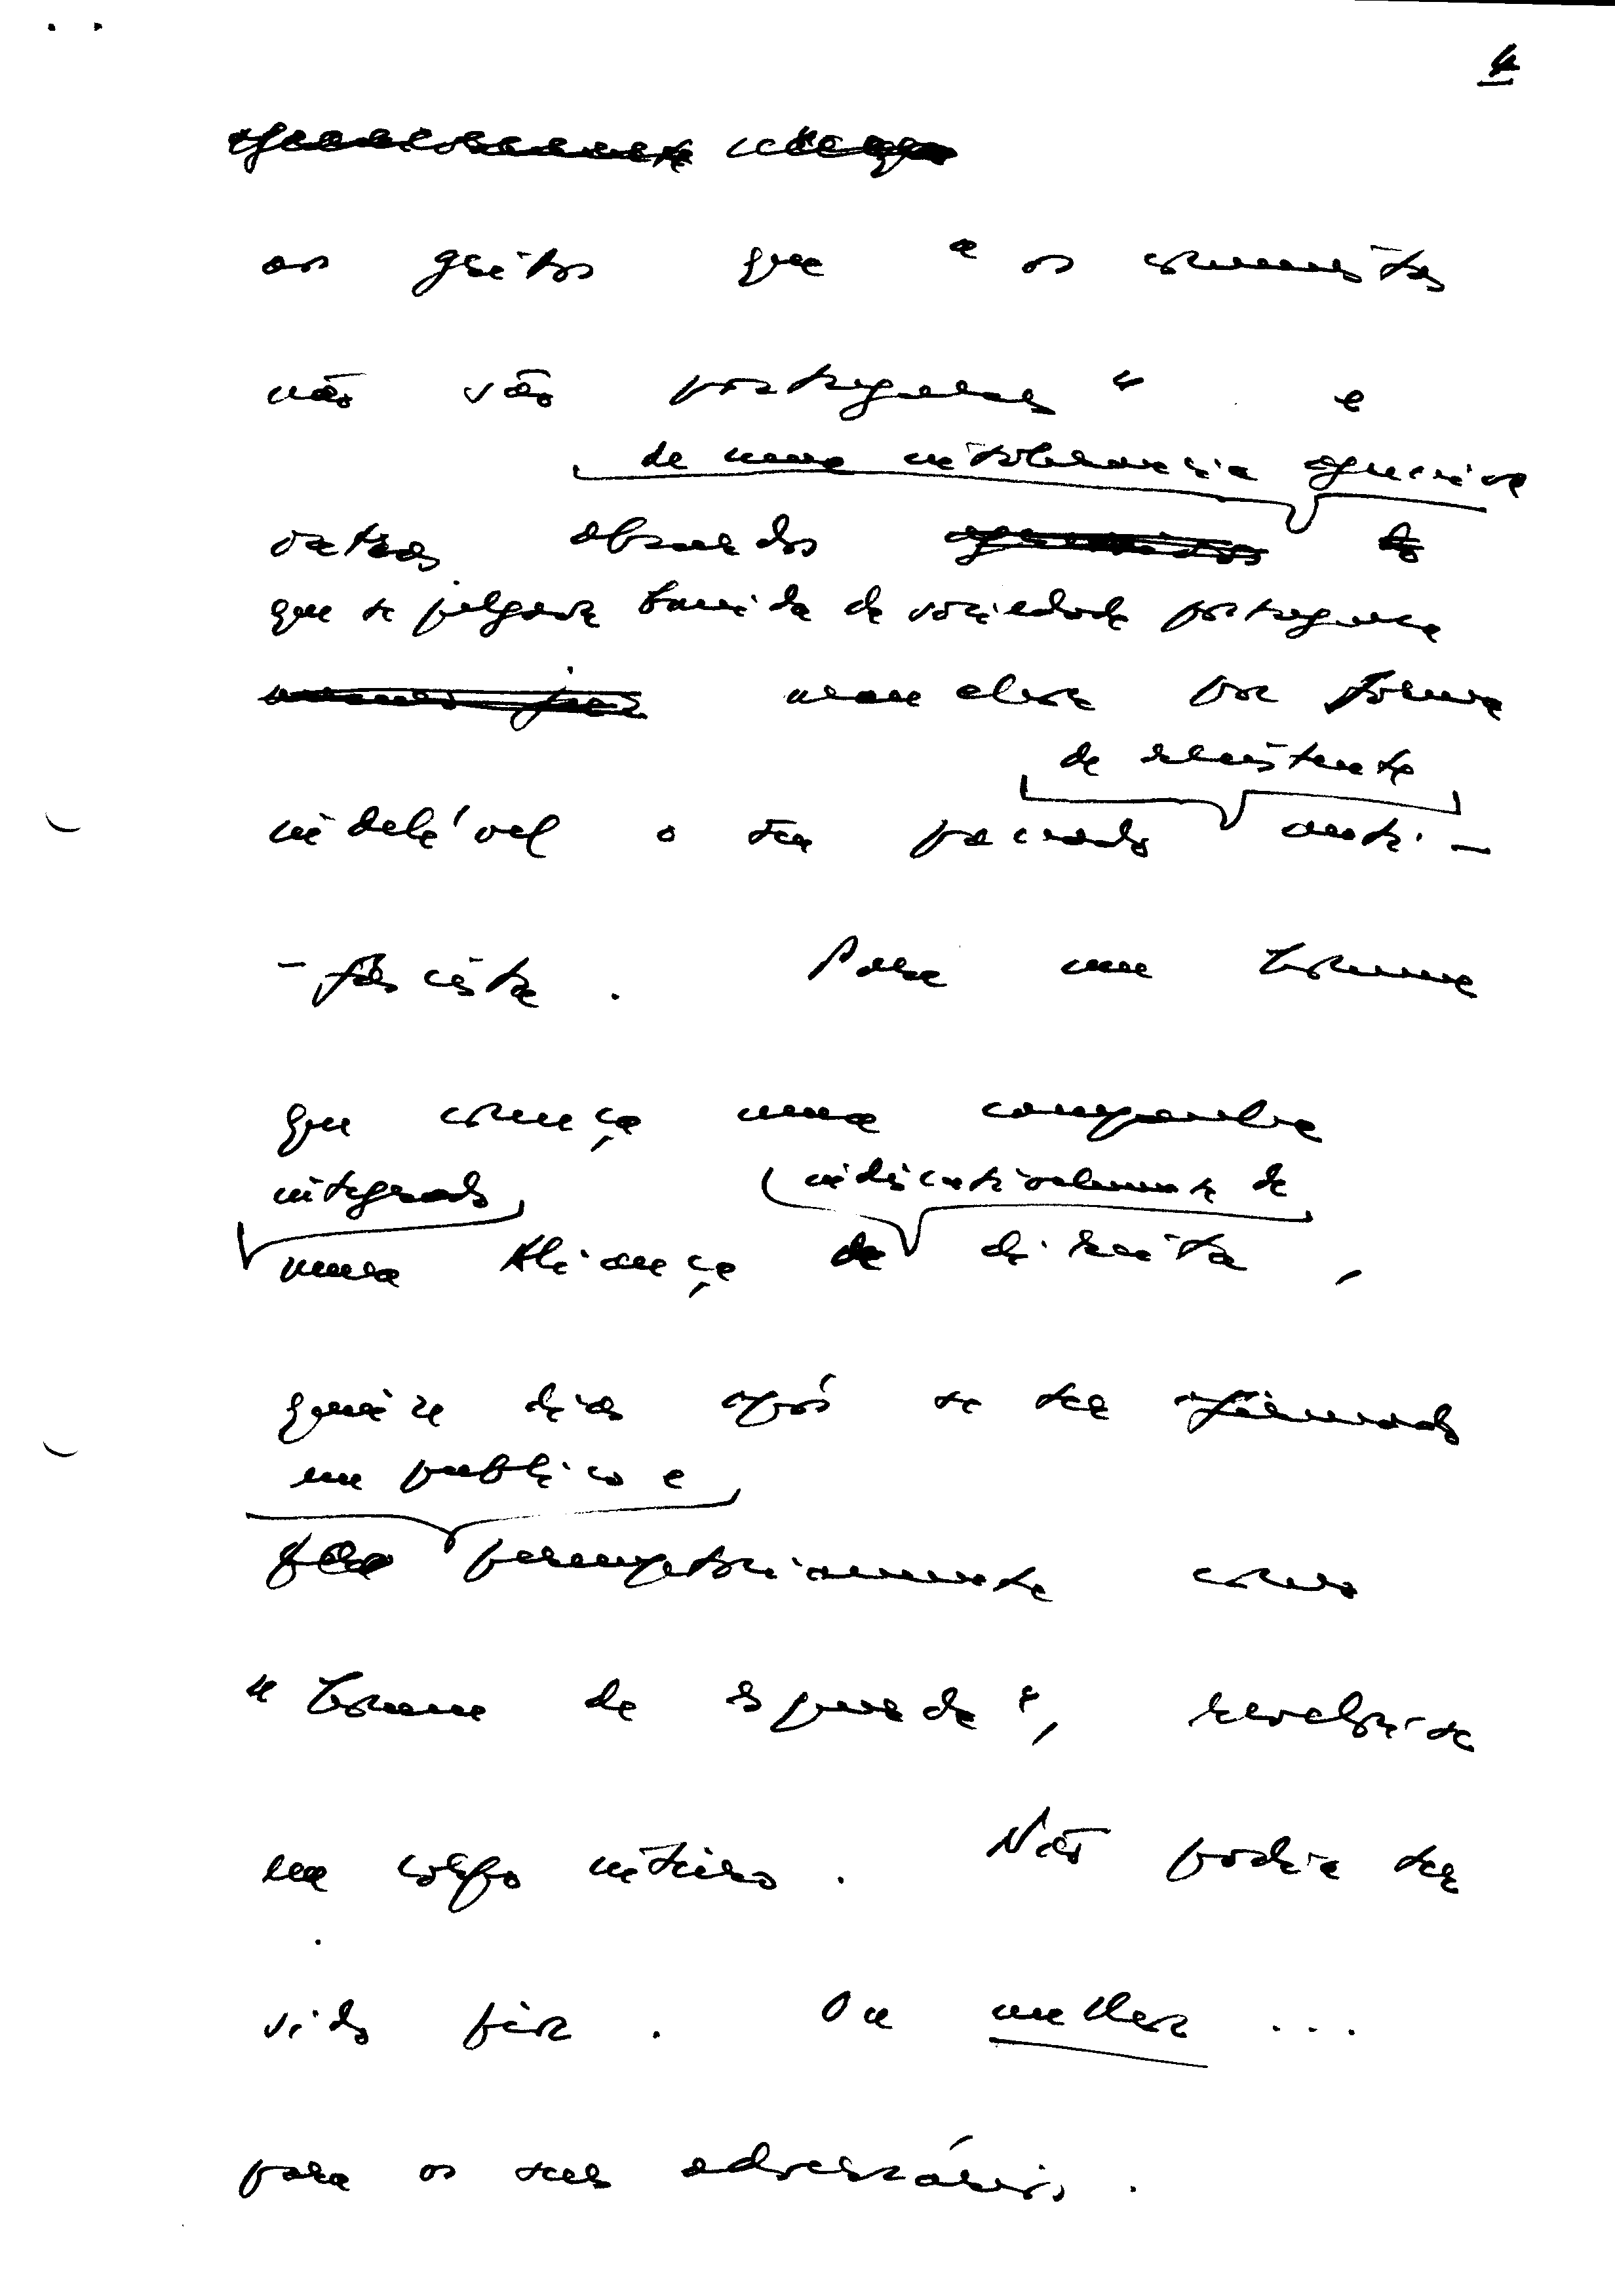 4
os gritos que "os comunistas
não são portugueses" e
de uma intolerância agressiva
outros absurdos
que se julgava banida da sociedade portuguesa
mancharam por forma
de resistente
indelével o seu passado anti-
-fascista. Para um homem
que começa uma campanha
integrado indiscutivelmente de
numa Aliança de direita,
quinze dias após se ter afirmado
em público e
peremptoriamente como
"homem de esquerda", revelou-se
em corpo inteiro. Não podia ter
sido pior. Ou melhor ...
para os seus adversários.